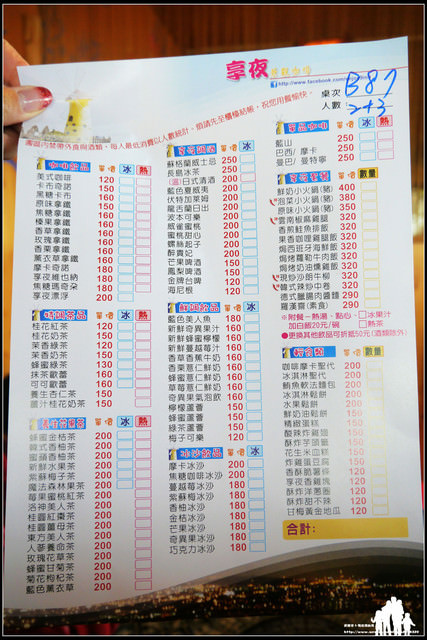 享夜
http://www.facebook.com
桌次 B87
人數 2+3
園區內禁帶外食與酒類，每人最低消費以人數統計，煩請先至櫃檯結帳，祝您用餐愉快。
咖啡飲品 單價 冰 熱
美式咖啡 120
卡布奇諾 150
黑糖卡布 160
原味拿鐵 150
焦糖拿鐵 160
榛果拿鐵 160
香草拿鐵 160
玫瑰拿鐵 160
薰衣草拿鐵 160
摩卡奇諾 180
享夜維也納 180
焦糖瑪奇朵 180
享夜漂浮 200
單價 冰 熱
桂花紅茶 150
桂花奶茶 150
茉香綠茶 150
茉香奶茶 150
蜂蜜綠茶 130
抹茶歐蕾 150
可可歐蕾 160
養生杏仁茶 150
薑汁桂花奶茶 150
單價 冰 熱
蜂蜜金桔茶 200
韓式香柚茶 200
蜜蘋香柚茶 200
新鮮水果茶 200
紫蘇梅子茶 200
魔法森林果茶 200
莓果蜜桃紅茶 200
洛神美人茶 200
桂圓紅棗茶 200
桂圓薑母茶 200
東方美人茶 200
人蔘養命茶 200
玫瑰花草茶 200
蜂蜜甘菊茶 200
菊花枸杞茶 200
藍色薰衣草 200
享夜調酒 單價 冰
蘇格蘭威士忌 250
長島冰茶 250
(溫)日式清酒 200
藍色夏威夷 200
伏特加萊姆 200
龍舌蘭日出 200
波本可樂 200
威雀蜜桃 200
蜜桃甜心 200
螺絲起子 200
醉貴妃 200
芒果啤酒 150
鳳梨啤酒 150
金牌台啤 120
海尼根 120
鮮調飲品 單價 冰
藍色美人魚 180
新鮮奇異果汁 160
新鮮蜂蜜檸檬 160
新鮮蔓越莓汁 160
香草香蕉牛奶 160
香栗薏仁鮮奶 160
蜂蜜薏仁鮮奶 160
草莓薏仁鮮奶 160
奇異果氣泡飲 160
檸檬蘆薈 150
蜂蜜蘆薈 150
綠茶蘆薈 150
梅子可樂 120
冰沙飲品 單價 冰
摩卡冰沙 200
焦糖咖啡冰沙 200
蔓越莓冰沙 180
紫蘇梅冰沙 180
香柚冰沙 180
金桔冰沙 180
芒果冰沙 180
奇異果冰沙 180
巧克力冰沙 180
單品咖啡 單價 冰 熱
藍山 250
巴西/ 摩卡 250
曼巴/ 曼特寧 250
單價 數量
鮮奶小火鍋(豬) 400
泡菜小火鍋(豬) 380
原味小火鍋(豬) 350
雲南椒麻雞腿 320
香煎鮭魚排飯 320
果香咖哩雞腿飯 320
焗西班牙海鮮飯 320
焗烤蘿勒牛肉飯 320
焗烤奶油燻雞飯 320
現炒沙朗牛柳 320
韓式辣炒中卷 320
德式臘腸肉醬麵 290
羅漢齋(素食) 290
※附餐－熱湯、點心、 冰果汁
加白飯20元/碗 熱茶
●更換其他飲品可折抵50元(酒類除外)
輕食類 單價 數量
咖啡摩卡聖代 150
冰淇淋聖代 150
鮪魚軟法麵包 150
冰淇淋鬆餅 150
水果鬆餅 150
鮮奶油鬆餅 150
精緻蛋糕 150
酸辣炸雞翅 150
酥炸芋頭籤 150
花生米血糕 150
炸雞蛋豆腐 150
香酥脆薯條 150
享夜香雞塊 120
酥炸洋蔥圈 120
酥炸甜不辣 120
甘梅黃金地瓜 120
合計: